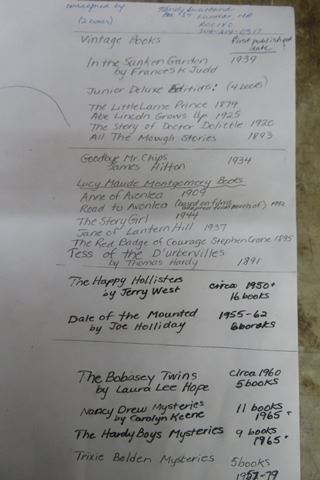 consigned by
(2 boxes)
Vintage Books First published date
In the Sunken Garden 1939
by Frances K Judd
Junior Deluxe Editions: (4 books)
The Little Lame Prince 1879
Abe Lincoln Grows Up 1925
The Story of Doctor Dolittle 1920
All The Mowgli Stories 1893
Goodbye Mr. Chips 1934
James Hilton
Lucy Maude Montgomery Books
Anne of Avonlea 1909
Road to Avonlea (based on films 1992
The Story Girl 1944
Jane of Lantern Hill 1937
The Red Badge of Courage Stephen Crane 1895
Tess of the D'urbervilles
by Thomas Hardy 1891
The Happy Hollisters circa 1950+
by Jerry West 16 books
Dale of the Mounted 1955-62
by Joe Holliday 6 books
The Bobbsey Twins circa 1960
by Laura Lee Hope 5 books
Nancy Drew Mysteries 11 books
by Carolyn Keene 1965+
The Hardy Boys Mysteries 9 books
1965+
Trixie Belden Mysteries 5 books
1951-79